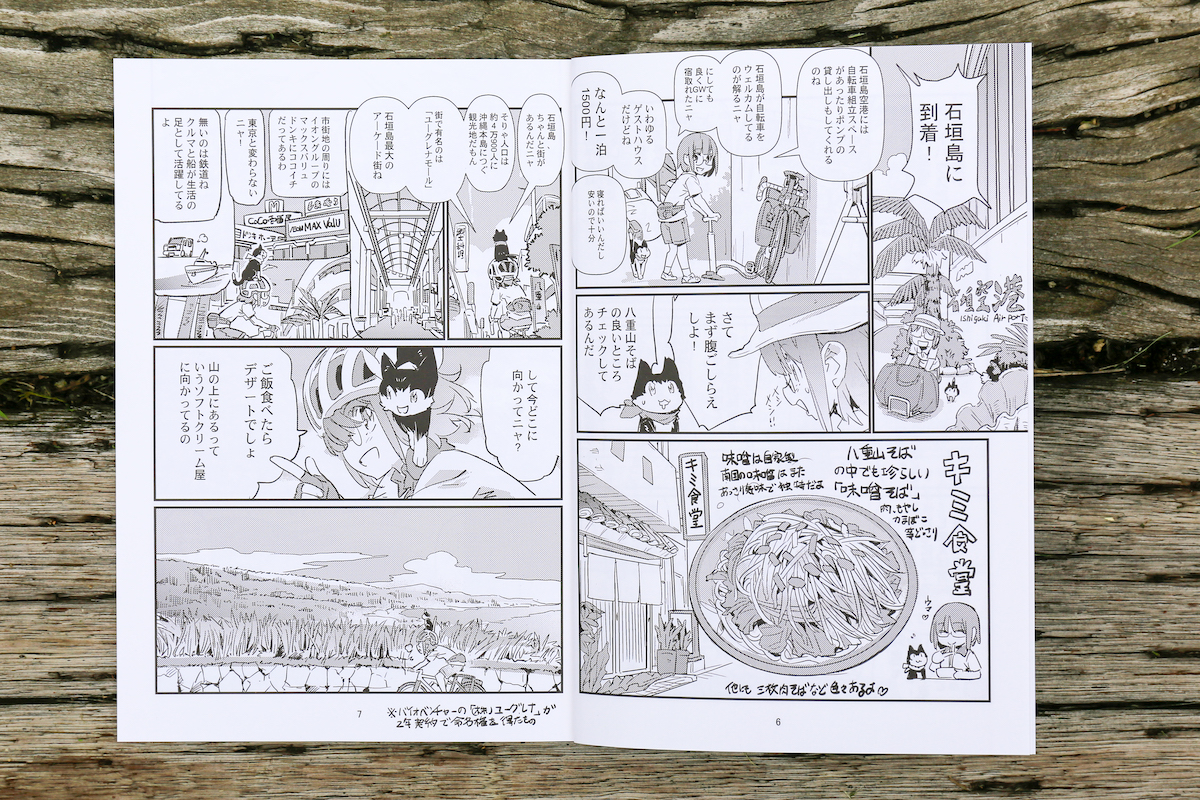 石垣島に
到着！
石垣空港
Ishigaki Airport
石垣島空港には
自転車組立スペース
があったりポンプの
貸し出しもしてくれる
のね
石垣島が自転車を
ウェルカムしてる
のが解るニャ
にしても
良くGWに
宿取れたニャ
いわゆる
ゲストハウス
だけどね
なんと一泊
1500円！
寝ればいいんだし
安いので十分
さて
まず腹ごしらえ
しよ！
八重山そば
の良いところ
チェックして
あるんだ
キミ食堂
八重山そば
の中でも珍らしい
「味噌そば」
肉、もやし
かまぼこ
等どっさり
味噌は自家製
南国の味噌はまた
あっさり風味で独特だよ
キミ食堂
ウマ
他にも三枚肉そばなど色々あるよ♡
6
石垣島、
ちゃんと街が
あるんだニャ
そりゃ人口は
約4万900人に
沖縄本島につぐ
観光地だもん
街で有名のは
「ユーグレナモール」
石垣島最大の
アーケード街ね
市街地の周りには
イオングループの
マックスバリュ
ドンキにココイチ
だってあるわ
東京と変わらない
ニャ！
無いのは鉄道ね
クルマと船が生活の
足として活躍してる
よ
CoCo壱番屋
MAX Valu
ドンキホーテ
八重山
して今どこに
向かってニャ？
ご飯食べたら
デザートでしょ
山の上にあるって
いうソフトクリーム屋
に向かってるの
7
※バイオベンチャーの「(株)ユーグレナ」が
2年契約で命名権を得たもの